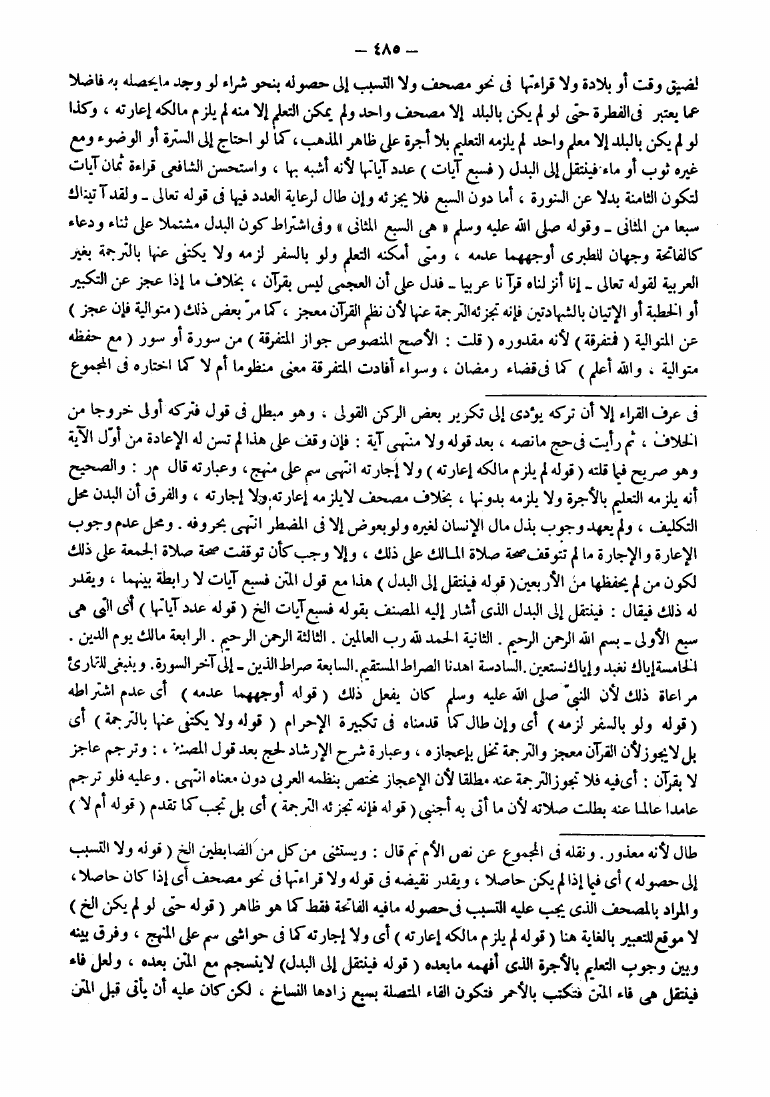 – ٤٨٥ –
لضيق وقت أو بلادة ولا قراءتها فى نحو مصحف ولا التسبب إلى حصوله بنحو شراء لو وجد مايحصله به فاضلا
عما يعتبر فى الفطرة حتى لو لم يكن بالبلد إلا مصحف واحد ولم يمكن التعلم إلا منه لم يلزم مالكه إعارته ، وكذا
لو لم يكن بالبلد إلا معلم واحد لم يلزمه التعليم بلا أجرة على ظاهر المذهب ، كما لو احتاج إلى السترة أو الوضوء ومع
غيره ثوب أو ماء فينتقل إلى البدل ( فسبع آيات ) عدد آياتها لأنه أشبه بها ، واستحسن الشافعى قراءة ثمان آيات
لتكون الثامنة بدلا عن السورة ، أما دون السبع فلا يجزئه وإن طال لرعاية العدد فيها فى قوله تعالى – ولقد آتيناك
سبعا من المثانى – وقوله صلى الله عليه وسلم « هى السبع المثانى » وفى اشتراط كون البدل مشتملا على ثناء ودعاء
كالفاتحة وجهان للطبرى أوجههما عدمه ، ومتى أمكنه التعلم ولو بالسفر لزمه ولا يكتفى عنها بالترجمة بغير
العربية لقوله تعالى – إنا أنزلناه قرآنا عربيا – فدل على أن العجمى ليس بقرآن ، بخلاف ما إذا عجز عن التكبير
أو الخطبة أو الإتيان بالشهادتين فإنه تجزئه الترجمة عنها لأن نظم القرآن معجز ، كما مرّ بعض ذلك ( متوالية فإن عجز )
عن المتوالية ( فمتفرقة ) لأنه مقدوره ( قلت : الأصح المنصوص جواز المتفرقة ) من سورة أو سور ( مع حفظه
متوالية ، والله أعلم ) كما فى قضاء رمضان ، وسواء أفادت المتفرقة معنى منظوما أم لا كما اختاره فى المجموع
فى عرف القراء إلا أن تركه يؤدى إلى تكرير بعض الركن القولى ، وهو مبطل فى قول فتركه أولى خروجا من
الخلاف ، ثم رأيت فى حج مانصه ، بعد قوله ولا منتهى آية : فإن وقف على هذا لم تسن له الإعادة من أوّل الآية
وهو صريح فيما قلته ( قوله لم يلزم مالكه إعارته ) ولا إجارته انتهى سم على منهج ، وعبارته قال مر : والصحيح
أنه يلزمه التعليم بالأجرة ولا يلزمه بدونها ، بخلاف مصحف لايلزمه إعارته ولا إجارته ، والفرق أن البدن محل
التكليف ، ولم يعهد وجوب بذل مال الإنسان لغيره ولو بعوض إلا فى المضطر انتهى بحروفه . ومحل عدم وجوب
الإعارة والإجارة ما لم تتوقف صحة صلاة المالك على ذلك ، وإلا وجب كأن توقفت صحة صلاة الجمعة على ذلك
لكون من لم يحفظها من الأربعين ( قوله فينتقل إلى البدل ) هذا مع قول المتن فسبع آيات لا رابطة بينهما ، ويقدر
له ذلك فيقال : فينتقل إلى البدل الذى أشار إليه المصنف بقوله فسبع آيات الخ ( قوله عدد آياتها ) أى التى هى
سبع الأولى – بسم الله الرحمن الرحيم . الثانية الحمد لله رب العالمين . الثالثة الرحمن الرحيم . الرابعة مالك يوم الدين .
الخامسة إياك نعبد وإياك نستعين . السادسة اهدنا الصراط المستقيم . السابعة صراط الذين – إلى آخر السورة . وينبغى للقارئ
مراعاة ذلك لأن النبىّ صلى الله عليه وسلم كان يفعل ذلك ( قوله أوجههما عدمه ) أى عدم اشتراطه
( قوله ولو بالسفر لزمه ) أى وإن طال كما قدمناه فى تكبيرة الإحرام ( قوله ولا يكتفى عنها بالترجمة ) أى
بل لايجوز لأن القرآن معجز والترجمة تخل بإعجازه ، وعبارة شرح الإرشاد لحج بعد قول المصنف : وترجم عاجز
لا بقرآن : أى فيه فلا تجوز الترجمة عنه مطلقا لأن الإعجاز مختص بنظمه العربى دون معناه انتهى . وعليه فلو ترجم
عامدا عالما عنه بطلت صلاته لأن ما أتى به أجنبى ( قوله فإنه تجزئه الترجمة ) أى بل تجب كما تقدم ( قوله أم لا )
طال لأنه معذور . ونقله فى المجموع عن نص الأم ثم قال : ويستثنى من كل من الضابطين الخ ( قوله ولا التسبب
إلى حصوله ) أى فيما إذا لم يكن حاصلا ، ويقدر نقيضه فى قوله ولا قراءتها فى نحو مصحف أى إذا كان حاصلا ،
والمراد بالمصحف الذى يجب عليه التسبب فى حصوله مافيه الفاتحة فقط كما هو ظاهر ( قوله حتى لو لم يكن الخ )
لا موقع للتعبير بالغاية هنا ( قوله لم يلزم مالكه إعارته ) أى ولا إجارته كما فى حواشى سم على المنهج ، وفرق بينه
وبين وجوب التعليم بالأجرة الذى أفهمه مابعده ( قوله فينتقل إلى البدل ) لاينسجم مع المتن بعده ، ولعل فاء
فينتقل هى فاء المتن فتكتب بالأحمر فتكون الفاء المتصلة بسبع زادها النساخ ، لكن كان عليه أن يأتى قبل المتن